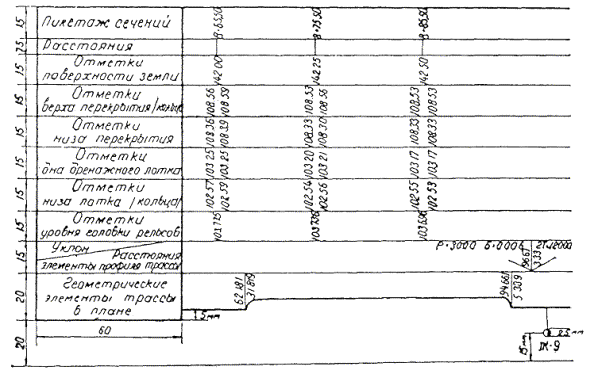 15
Пикетаж сечений
8+65.50
8+75.50
8+85.50
7.5
Расстояния
15
Отметки
поверхности земли
142.00
142.25
142.50
15
Отметки
верха перекрытия/кольца
108.56
108.59
108.53
108.56
108.53
108.53
15
Отметки
низа перекрытия
108.36
108.33
108.33
108.33
15
Отметки
дна дренажного лотка
103.25
103.25
103.20
103.21
103.17
103.17
15
Отметки
низа лотка /кольца/
102.57
102.59
102.54
102.56
102.55
102.53
15
Отметки
уровня головки рельсов
15
Уклон
Расстояния
элементы профиля трассы
Р=3000
96.67
3.33
20
Геометрические
элементы трассы
в плане
62.181
31.819
94.661
5.339
1.5 мм
60
20
15 мм
2.5 мм
ПК-9